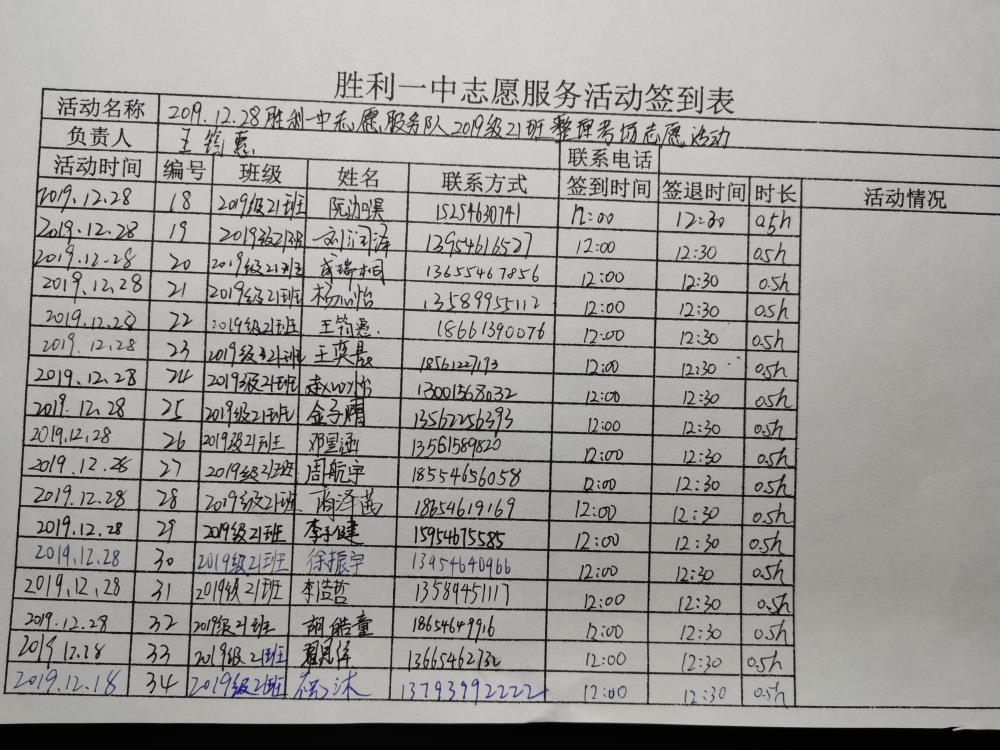 胜利一中志愿服务活动签到表
活动名称 2019.12.28胜利一中志愿服务队2019级21班整理考场志愿活动
负责人 王筠惠 联系电话
活动时间 编号 班级 姓名 联系方式 签到时间 签退时间 时长 活动情况
2019.12.28 18 2019级21班 15254630741 12:00 12:30 0.5h
2019.12.28 19 2019级21班 刘润泽 13954616527 12:00 12:30 0.5h
2019.12.28 20 2019级21班 成瑞桐 13655467856 12:00 12:30 0.5h
2019.12.28 21 2019级21班 杨心怡 13589955112 12:00 12:30 0.5h
2019.12.28 22 2019级21班 王筠惠 18661390076 12:00 12:30 0.5h
2019.12.28 23 2019级21班 王奕磊 18561227193 12:00 12:30 0.5h
2019.12.28 24 2019级21班 赵心怡 13001568032 12:00 12:30 0.5h
2019.12.28 25 2019级21班 金子熠 13562256393 12:00 12:30 0.5h
2019.12.28 26 2019级21班 13561589820 12:00 12:30 0.5h
2019.12.28 27 2019级21班 周航宇 18554656058 12:00 12:30 0.5h
2019.12.28 28 2019级21班 18654619169 12:00 12:30 0.5h
2019.12.28 29 2019级21班 李子健 15954675585 12:00 12:30 0.5h
2019.12.28 30 2019级21班 徐振宇 13954640966 12:00 12:30 0.5h
2019.12.28 31 2019级21班 李浩哲 13589451117 12:00 12:30 0.5h
2019.12.28 32 2019级21班 胡皓童 18654649916 12:00 12:30 0.5h
2019.12.28 33 2019级21班 13665462732 12:00 12:30 0.5h
2019.12.18 34 2019级21班 13793992222 12:00 12:30 0.5h